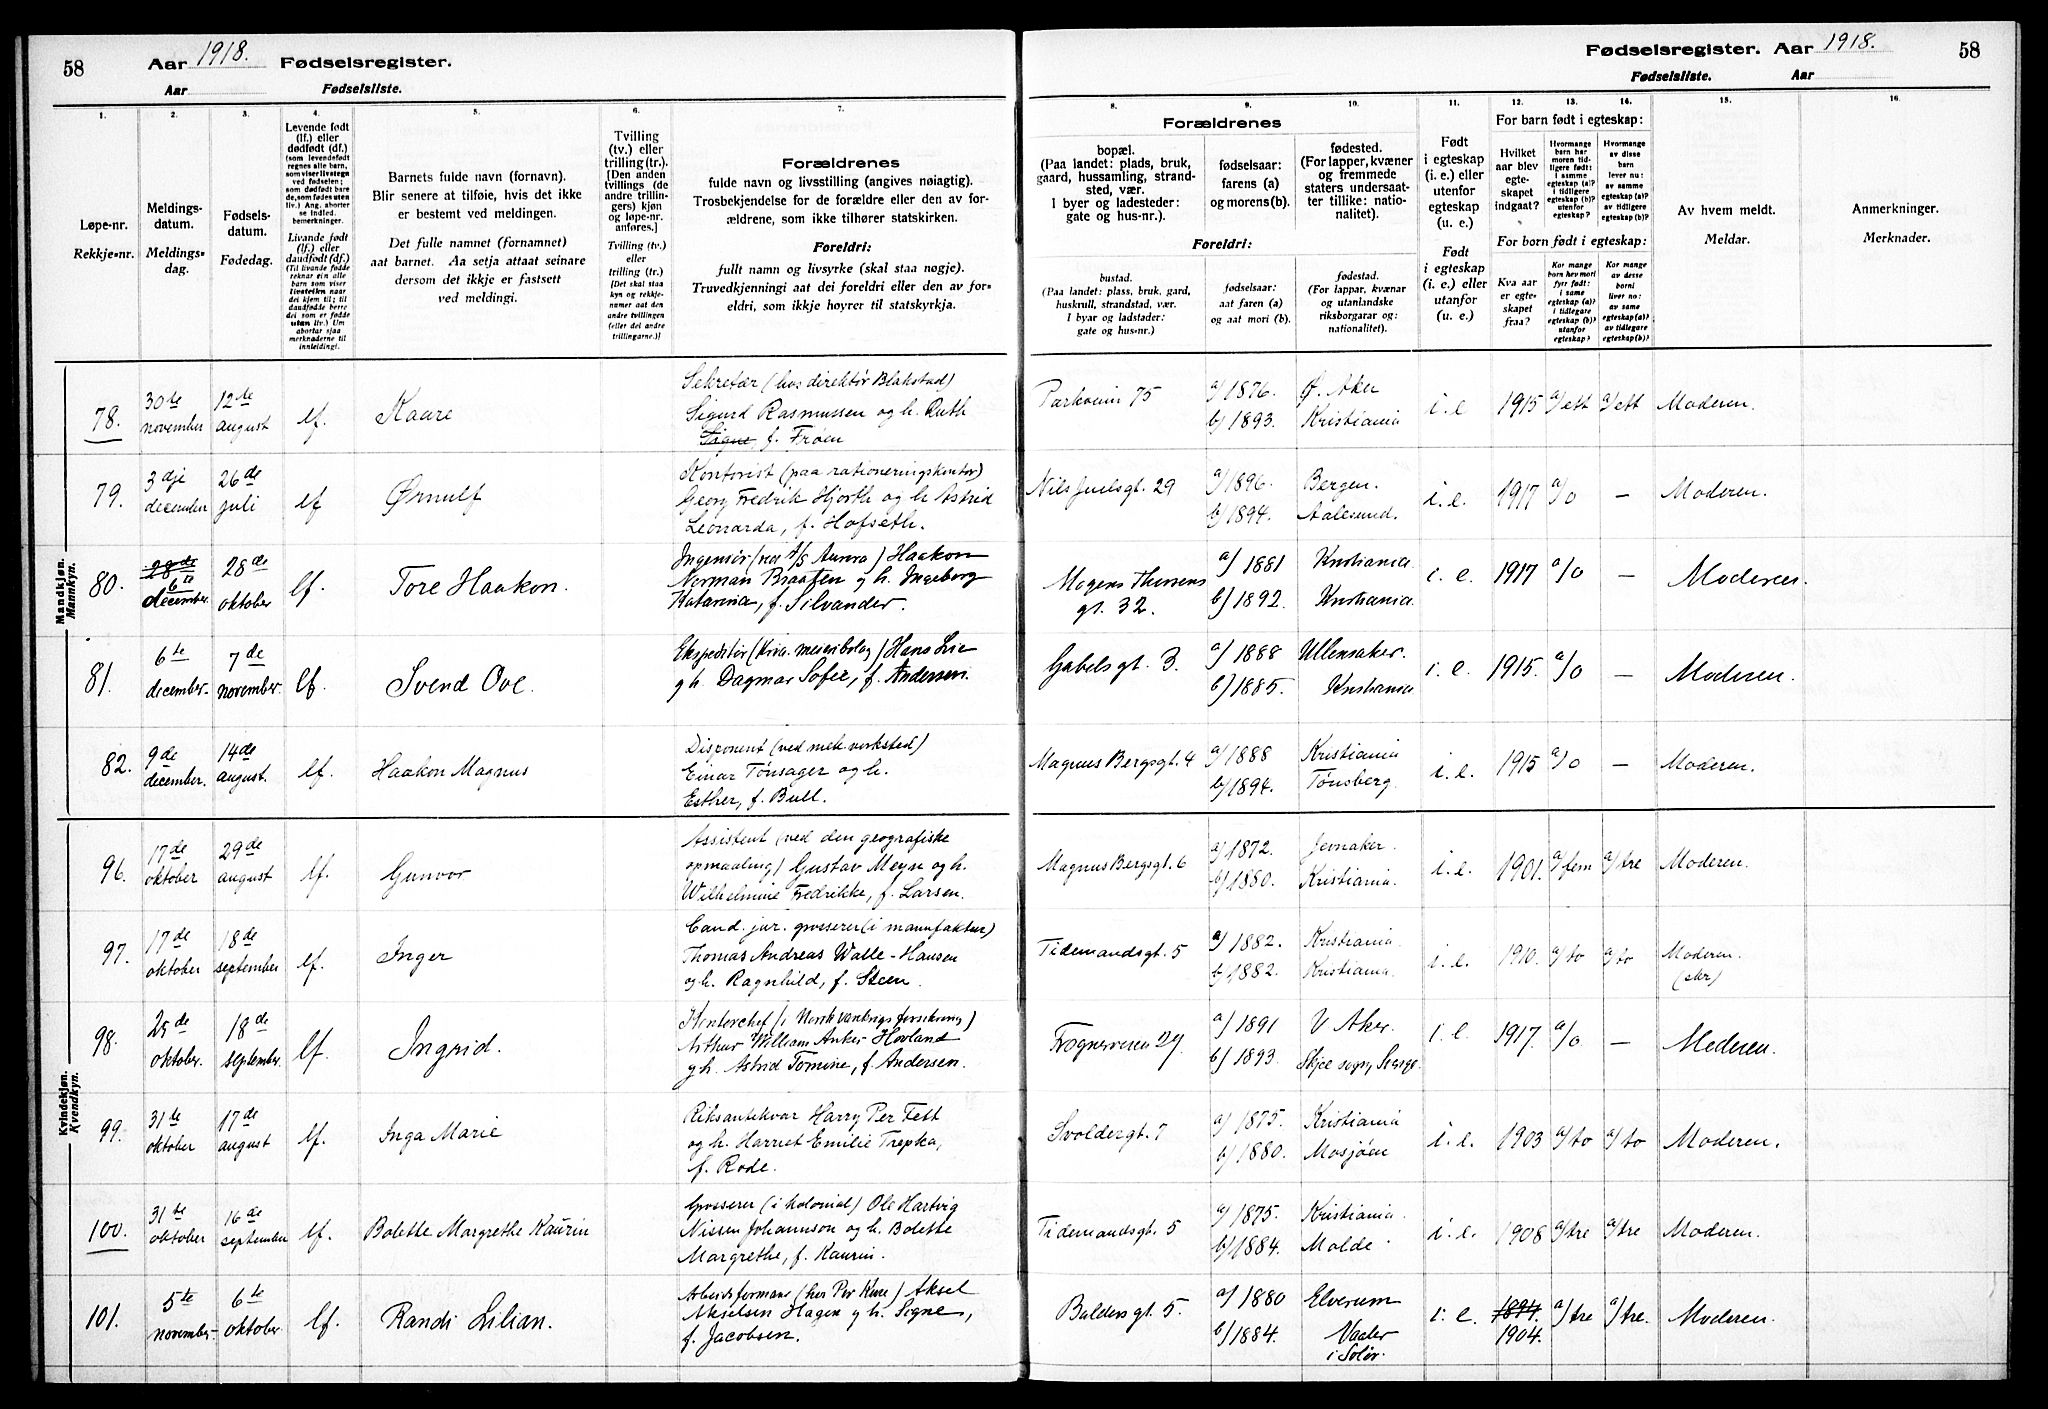 58
Aar 1918. Fødselsregister.
Aar Fødselsliste.
Fødselsregister. Aar 1918.
58
Fødselsliste. Aar
1.
Løpe-nr.
Rekkje-nr.
2.
Meldings-
datum.
Meldings-
dag.
3.
Fødsels-
datum.
Fødedag.
4.
Levende født
(lf.) eller
dødfødt (df.)
Livande født
(lf.) eller
daudfødt (df.)
5.
Barnets fulde navn (fornavn).
Blir senere at tilføie, hvis det ikke
er bestemt ved meldingen.
Det fulle namnet (fornamnet)
aat barnet. Aa setja attaat seinare
dersom det ikkje er fastsett
ved meldingi.
6.
Tvilling
(tv.) eller
trilling (tr.).
[Den anden
tvillings (de
andre trillin-
gers) kjøn
og løpe-nr.
anføres.]
Tvilling (tv.)
eller
trilling (tr.)
7.
Forældrenes
fulde navn og livsstilling (angives nøiagtig).
Trosbekjendelse for de forældre eller den av for-
ældrene, som ikke tilhører statskirken.
Foreldri:
fullt namn og livsyrke (skal staa nøgje).
Truvedkjenningi aat dei foreldri eller den av for-
eldri, som ikkje høyrer til statskyrkja.
Forældrenes
8.
bopæl.
(Paa landet: plads, bruk,
gaard, hussamling, strand-
sted, vær.
I byer og ladesteder:
gate og hus-nr.).
9.
fødselsaar:
farens (a)
og morens (b).
10.
fødested.
(For lapper, kvæner
og fremmede
staters undersaat-
ter tillike: natio-
nalitet).
Foreldri:
bustad.
(Paa landet: plass, bruk, gard,
huskrull, strandstad, vær.
I byar og ladstader:
gate og hus-nr.)
fødselsaar:
aat faren (a)
og aat mori (b).
fødestad.
(For lappar, kvænar
og utanlandske
riksborgarar og:
nationalitet).
11.
Født
i egteskap
(i. e.) eller
utenfor
egteskap
(u. e.)
Født
i egteskap
(i. e.) eller
utanfor
(u. e.)
For barn født i egteskap:
12.
Hvilket
aar blev
egte-
skapet
indgaat?
13.
14.
For born født i egteskap:
Kva aar
er egte-
skapet
fraa?
15.
Av hvem meldt.
Meldar.
16.
Anmerkninger.
Merknader.
Mandkjøn.
Mannkyn.
78. 30te november 12te august lf. Kaare
Sekretær (hos direktør Blakstad)
Sigurd Rasmussen og h. Ruth
Signe, f. Frøen
Parkveien 75 a/ 1876. b/ 1893. Ø. Aker Kristiania i. e 1915 a/ ett a/ ett Moderen.
79. 3dje december 26de juli lf Ørnulf
Kontorist (paa rationeringskontor)
Georg Fredrik Hjorth og h. Astrid
Leonarda, f. Hofseth.
Nils Juelsgt. 29 a/ 1896. b/ 1894. Bergen. Aalesund. i. e. 1917 a/o — Moderen.
80. 28de 6te december. 28de oktober lf. Tore Haakon.
Ingeniør (ved A/S Aurora) Haakon
Norman Braaten og h. Ingeborg
Katarina, f. Silvander.
gt. 32. a/ 1881 b/ 1892. Kristiania. Kristiania. i. e. 1917 a/o — Moderen.
81. 6te december. 7de november. lf. Svend Ove.
Ekspeditør (Kria. meieribolag) Hans Lie
og h. Dagmar Sofie, f. Andersen.
Gabelsgt. 3. a/ 1888 b/ 1885. Ullensaker. Kristiania i. e. 1915. a/o — Moderen.
82. 9de december. 14de august. lf. Haakon Magnus
Disponent (ved mek. verksted)
Einar Tønsager og h.
Esther, f. Bull.
Magnus Bergsgt. 4 a/ 1888 b/ 1894. Kristiania Tønsberg i. e. 1915 a/o — Moderen.
Kvindekjøn.
Kvendkyn.
96. 17de oktober 29de august lf. Gunvor
Assistent (ved den geografiske
opmaaling) Gustav Meyse og h.
Wilhelmine Fredrikke, f. Larsen.
Magnus Bergsgt. 6 a/ 1872. b/ 1880. Jevnaker. Kristiania. i. e. 1901. a/ fem a/ tre Moderen.
97. 17de oktober 18de september lf. Inger
Cand. jur. grosserer (i manufaktur)
Thomas Andreas Walle-Hansen
og h. Ragnhild, f. Steen.
Tidemandsgt. 5 a/ 1882. b/ 1882. Kristiania. Kristiania. i. e. 1910. a/ to a/ to Moderen.
98. 25de oktober. 18de september. lf. Ingrid.
Kontorchef (i Norsk forsikring)
Arthur William Anker Hovland
og h. Astrid Tomine, f. Andersen.
Frognerveien 29. a/ 1891 b/ 1893. V Aker. i. e. 1917. a/o — Moderen.
99. 31te oktober 17de august lf. Inga Marie
Riksantikvar Harry Per Fett
og h. Harriet Emilie Trepka,
f. Rode.
Svoldergt. 7 a/ 1875. b/ 1880. Kristiania Mosjøen i. e. 1903 a/ to a/ to Moderen.
100. 31te oktober 16de september lf. Bolette Margrethe Kaurin
Grosserer (i kolonial) Ole Hartvig
Nissen Johannson og h. Bolette
Margrethe, f. Kaurin.
Tidemandsgt. 5 a/ 1875. b/ 1884. Kristiania. Molde. i. e. 1908 a/ tre a/ tre Moderen.
101. 5te november. 6te oktober. lf. Randi Lilian.
Arbeidsformann (hos Per Kure) Aksel
Akselsen Hagen og h. Signe,
f. Jacobsen.
Baldersgt. 5. a/ 1880 b/ 1884. Elverum Vaaler i Solør. i. e. 1894. 1904. a/ tre a/ tre. Moderen.